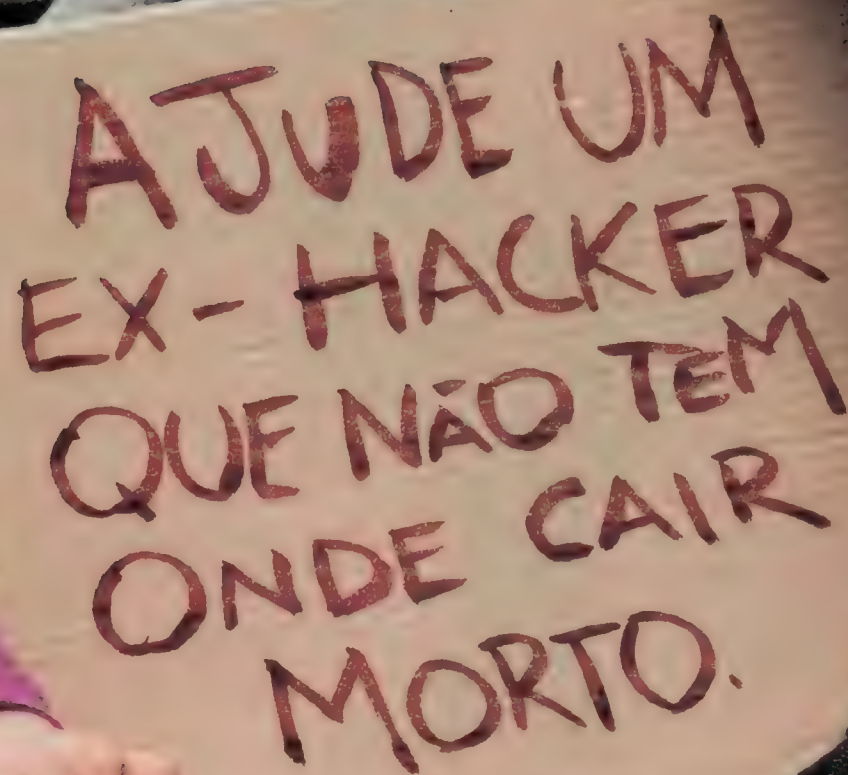 AJUDE UM
EX-HACKER
QUE NÃO TEM
ONDE CAIR
MORTO.